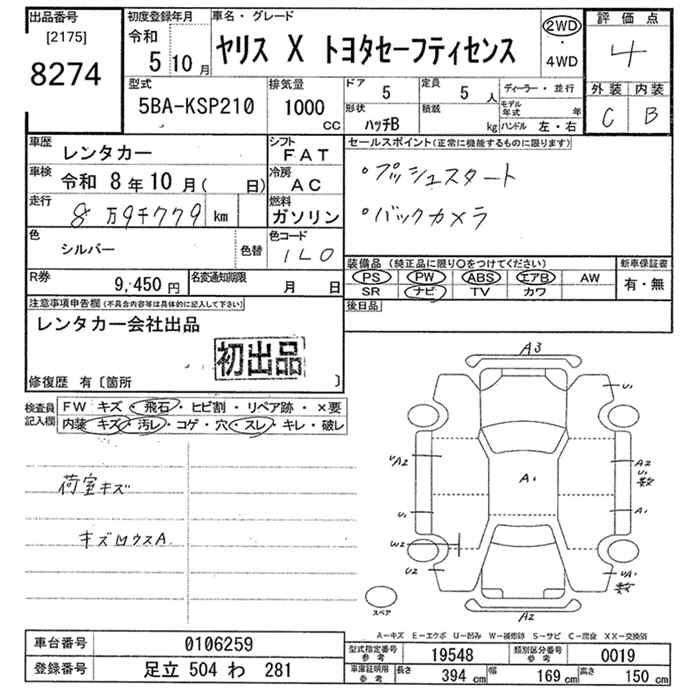 出品番号
[2175]
8274
初度登録年月
令和
5 10月
車名・グレード
ヤリス X トヨタセーフティセンス
2WD
・
4WD
評価点
4
外装 内装
C B
型式
5BA-KSP210
排気量
1000
cc
ドア
5
定員
5 人
形状
ハッチB
積載
kg
ディーラー・並行
モデル年式 年
ハンドル 左・右
車歴
レンタカー
シフト
FAT
車検
令和 8年10月( 日)
冷房
AC
走行
8万9千779 km
燃料
ガソリン
色
シルバー
色替
色コード
1L0
R券
9,450円
名変通知期限
月 日
セールスポイント(正常に機能するものに限ります)
・プッシュスタート
・バックカメラ
装備品(純正品に限り○をつけてください)
新車保証書
PS PW ABS エアB AW
SR ナビ TV カワ
有・無
後日品
注意事項申告欄(不具合内容等は具体的に記入して下さい)
レンタカー会社出品
初出品
修復歴 有〔箇所 〕
検査員
記入欄
FW キズ・飛石・ヒビ割・リペア跡・×要
内装 キズ・汚レ・コゲ・穴・スレ・キレ・破レ
荷室キズ
キズ凹ウスA
A3
U1
UA2
A1
A2
U1
数
U1
A1
W2
U2
UA1
数
スペア
A2
A-キズ E-エクボ U-凹み W-補修跡 S-サビ C-腐食 XX-交換済
車台番号
0106259
登録番号
足立 504 わ 281
型式指定番号
参考
19548
類別区分番号
参考
0019
車庫証明用
参考
長さ 394 cm 幅 169 cm 高さ 150 cm